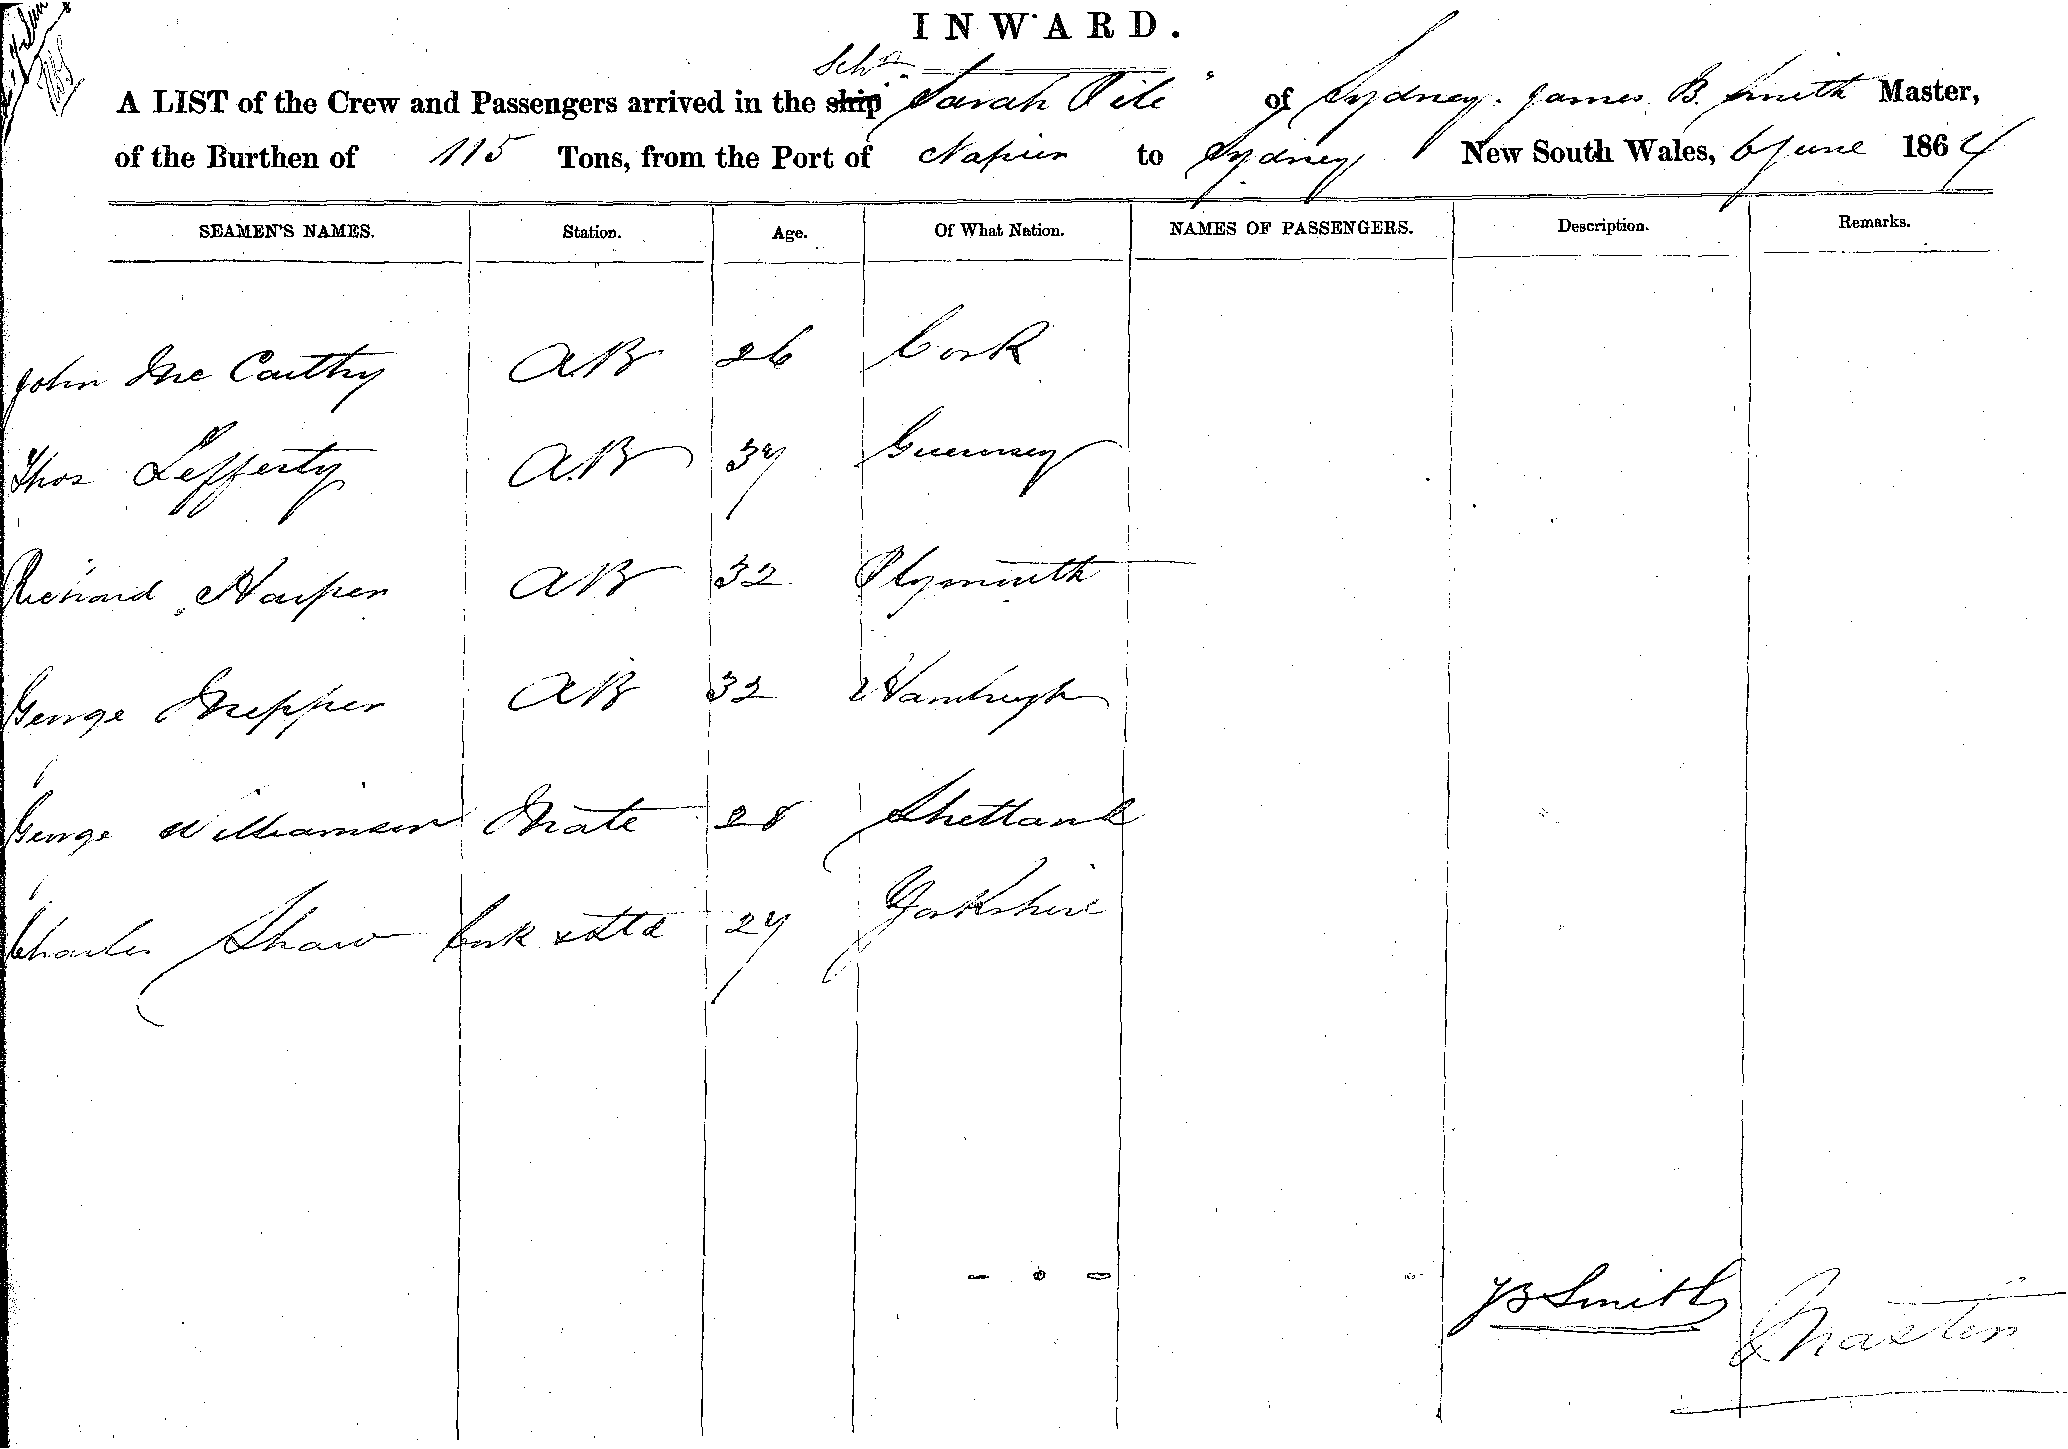 INWARD.
Schr
A LIST of the Crew and Passengers arrived in the ship "Sarah Pile" of Sydney. James B. Smith Master,
of the Burthen of 115 Tons, from the Port of Napier to Sydney New South Wales, 6 June 1864
SEAMEN'S NAMES. Station. Age. Of What Nation. NAMES OF PASSENGERS. Description. Remarks.
John McCarthy AB 26 Cork
Thos Lefferty AB 37 Guernsey
Richard Harper AB 32 Plymouth
George AB 32
George Williamson Mate 28 Shetland
Charles Shaw Cook & Std 27 Yorkshire
JB Smith
Master